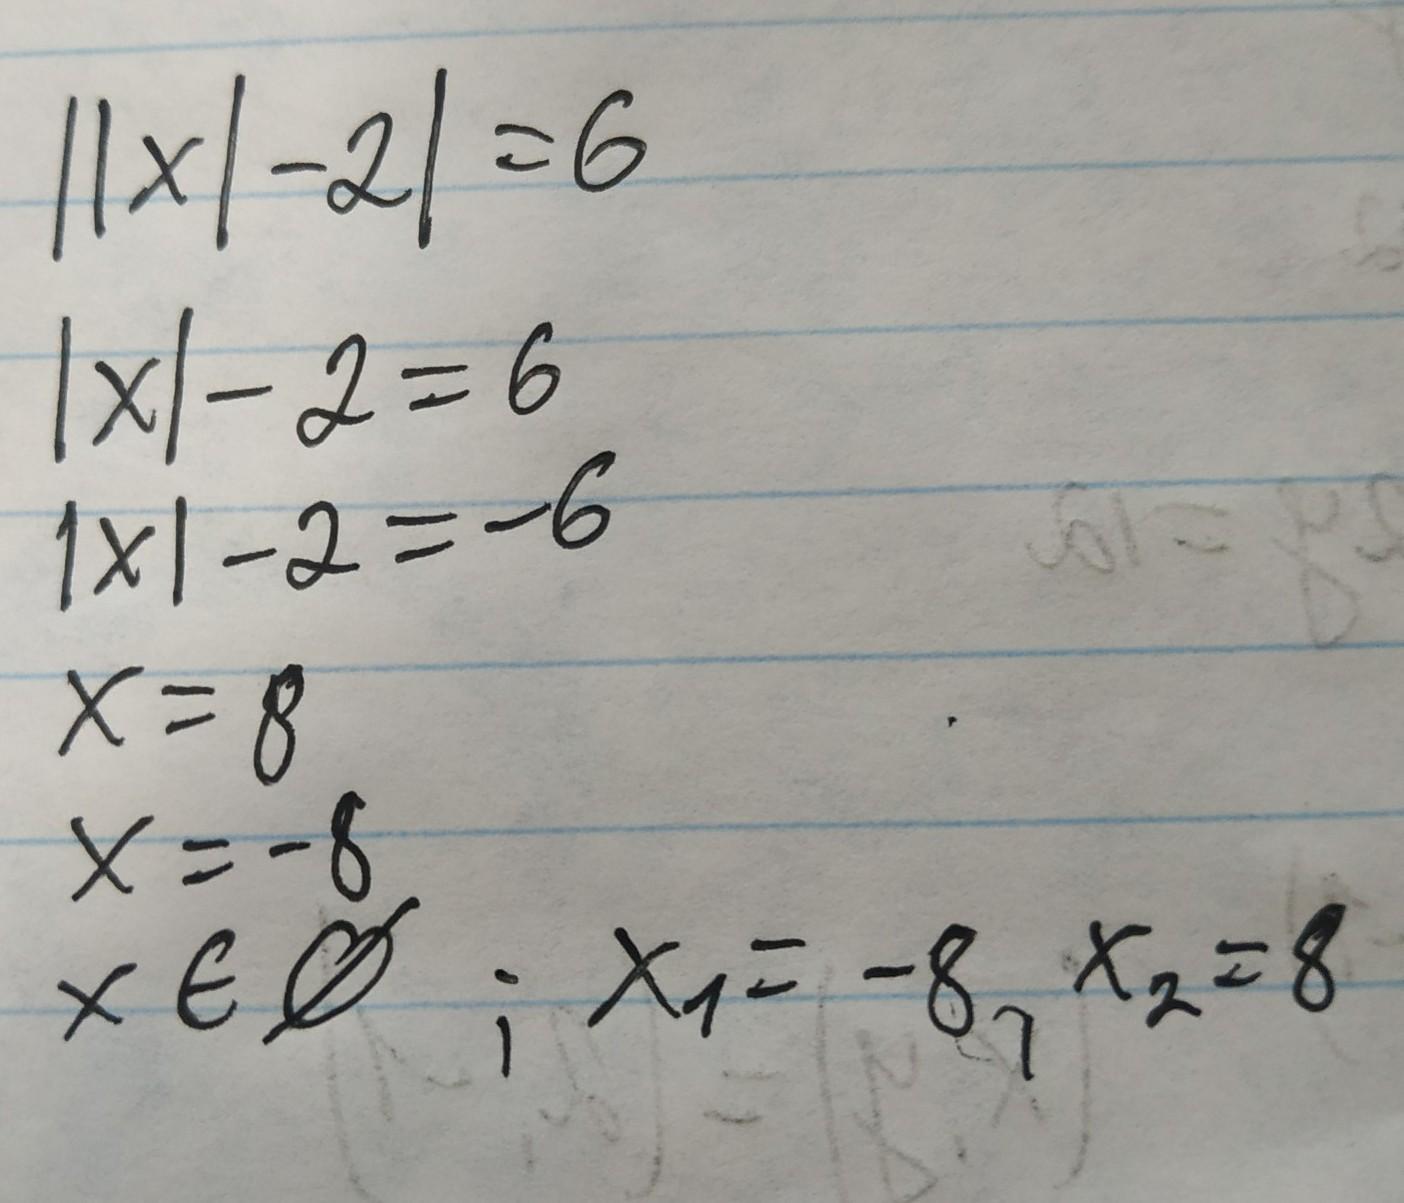 ||x|-2|=6
|x|-2=6
|x|-2=-6
x=8
x=-8
x∈∅ ; x₁=-8, x₂=8